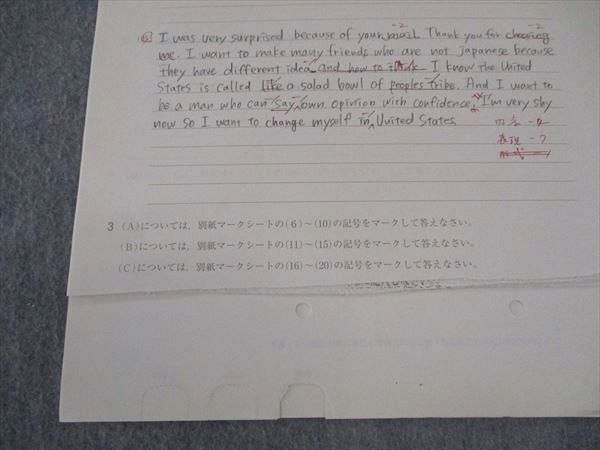 -2 -2
I was very surprised because of your mail Thank you for choosing
me. I want to make many friends who are not Japanese because
they have different idea and how to think I know the United
States is called like a salad bowl of peoples tribe. And I want to
be a man who can say own opinion with confidence. I'm very shy
now so I want to change myself in United States.
内容 -4
表現 -7
3 (A)については，別紙マークシートの(6)～(10)の記号をマークして答えなさい。
(B)については，別紙マークシートの(11)～(15)の記号をマークして答えなさい。
(C)については，別紙マークシートの(16)～(20)の記号をマークして答えなさい。